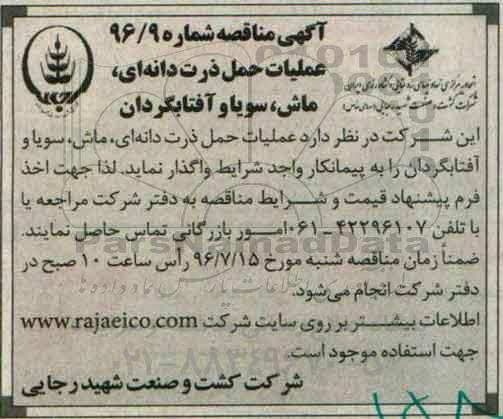 آگهی مناقصه شماره ۹۶/۹
عملیات حمل ذرت دانه‌ای،
ماش، سویا و آفتابگردان
این شرکت در نظر دارد عملیات حمل ذرت دانه‌ای، ماش، سویا و
آفتابگردان را به پیمانکار واجد شرایط واگذار نماید. لذا جهت اخذ
فرم پیشنهاد قیمت و شرایط مناقصه به دفتر شرکت مراجعه یا
با تلفن ۴۲۲۹۶۱۰۷ـ۰۶۱ امور بازرگانی تماس حاصل نمایند.
ضمناً زمان مناقصه شنبه مورخ ۹۶/۷/۱۵ رأس ساعت ۱۰ صبح در
دفتر شرکت انجام می‌شود.
اطلاعات بیشتر بر روی سایت شرکت www.rajaeico.com
جهت استفاده موجود است.
شرکت کشت و صنعت شهید رجایی
ParsNamadData